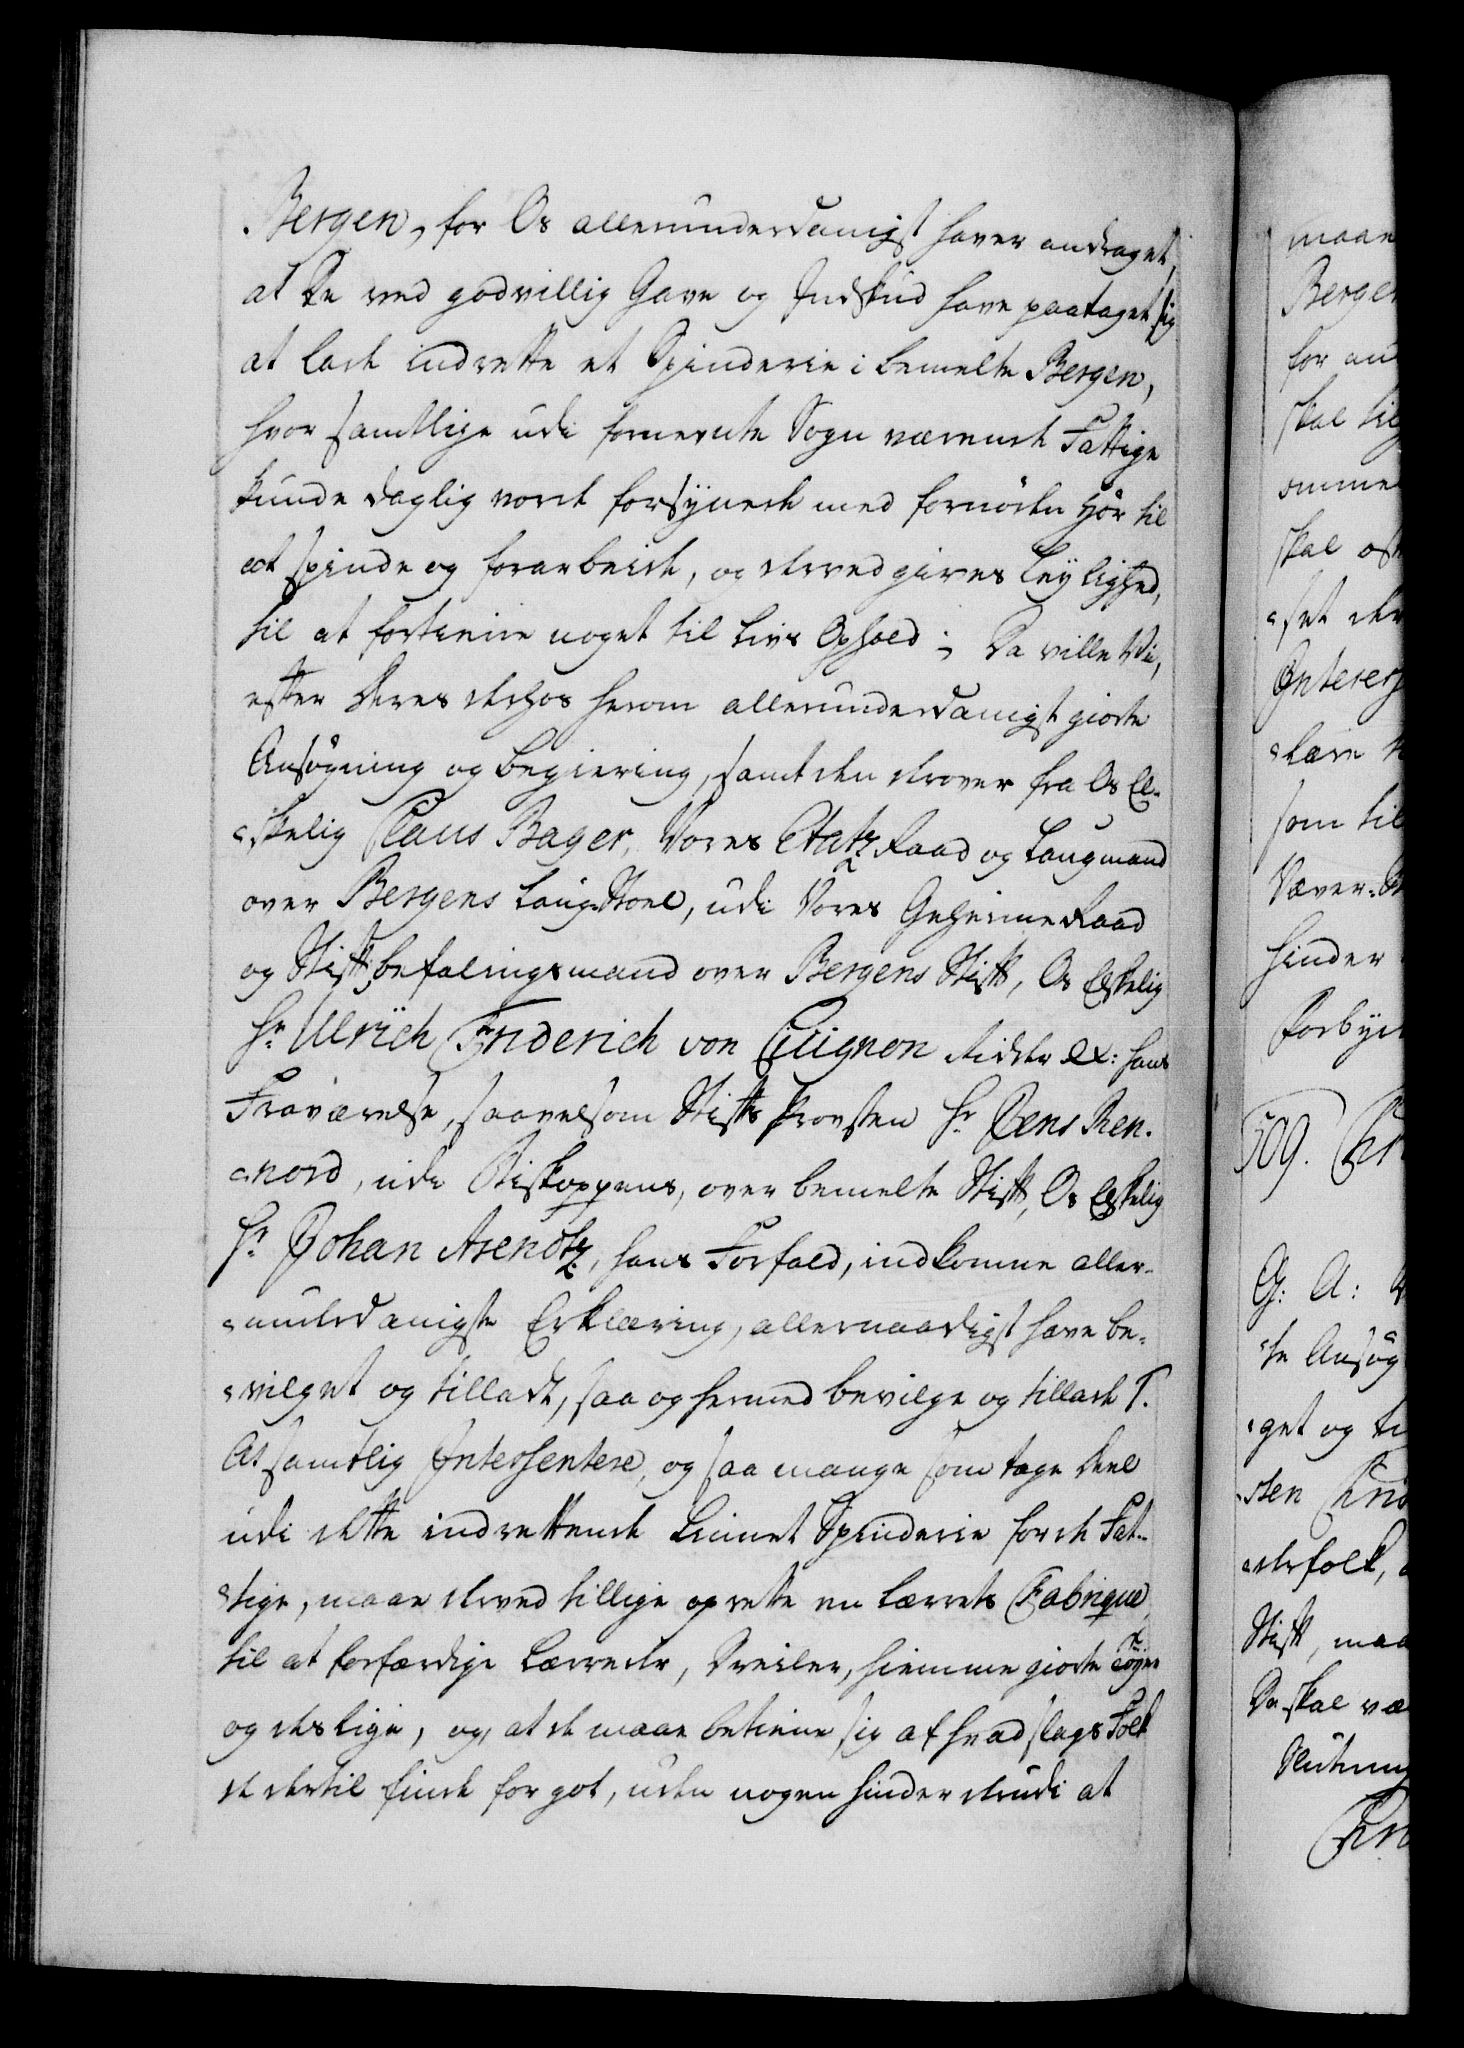 Bergen, for Os allerunderdanigst haver andraget,
at De ved godvillig Gave og Indskud have paataget sig
at lade indrette et Spinderie i bemelte Bergen,
hvor samtlige udi fornevnte Sogn værende Fattige
kunde daglig vorde forsynede med fornøden Hør til
at spinde og forarbeide, og derved gives Leylighed,
til at fortienne noget til Livs Ophold; Da ville Vi,
efter deres derhos herom allerunderdanigst giorte
Ansøgning og Begiering, samt den derover fra Os El-
skelig Claus Bager, Vores Etatz Raad og Laugmand
over Bergens Laug-Stoel, udi Vores Geheime Raad
og Stiftbefalingsmand over Bergens Stift, Os Elskelig
Hr. Ulrich Friderich von Cicignon Ridder &: hans
Fraværelse, saavelsom Stifts Provsten Hr. Jens Ren-
nord, udi Biskoppens, over bemelte Stift, Os Elskelig
Hr. Johan Arendtz, hans Forfald, indkomne aller-
underdanigste Erklæring, allernaadigst have be-
vilget og tilladt, saa og hermed bevilge og tillade T.
At samtlig Interssentere, og saa mange som tage Deel
udi dette indrettende Linnet Spinderie for de Fat-
tige, maae derved tillige oprette en Lærrets Fabrique,
til at forfærdige Lærreder, Dreiler, hiemme giorte Tøyer
og deslige, og at de maae betiene sig af hvad slags Folk
de dertil finde for got, uden nogen hinder derudi at
maae
Bergen
for an
skal til
omme
skal
set der
Interess
som til
Væver
hinder
Forbyd
509.
G: A:
te Ansøg
get og ti
sten
derfolk,
Stift, maa
Da skal væ